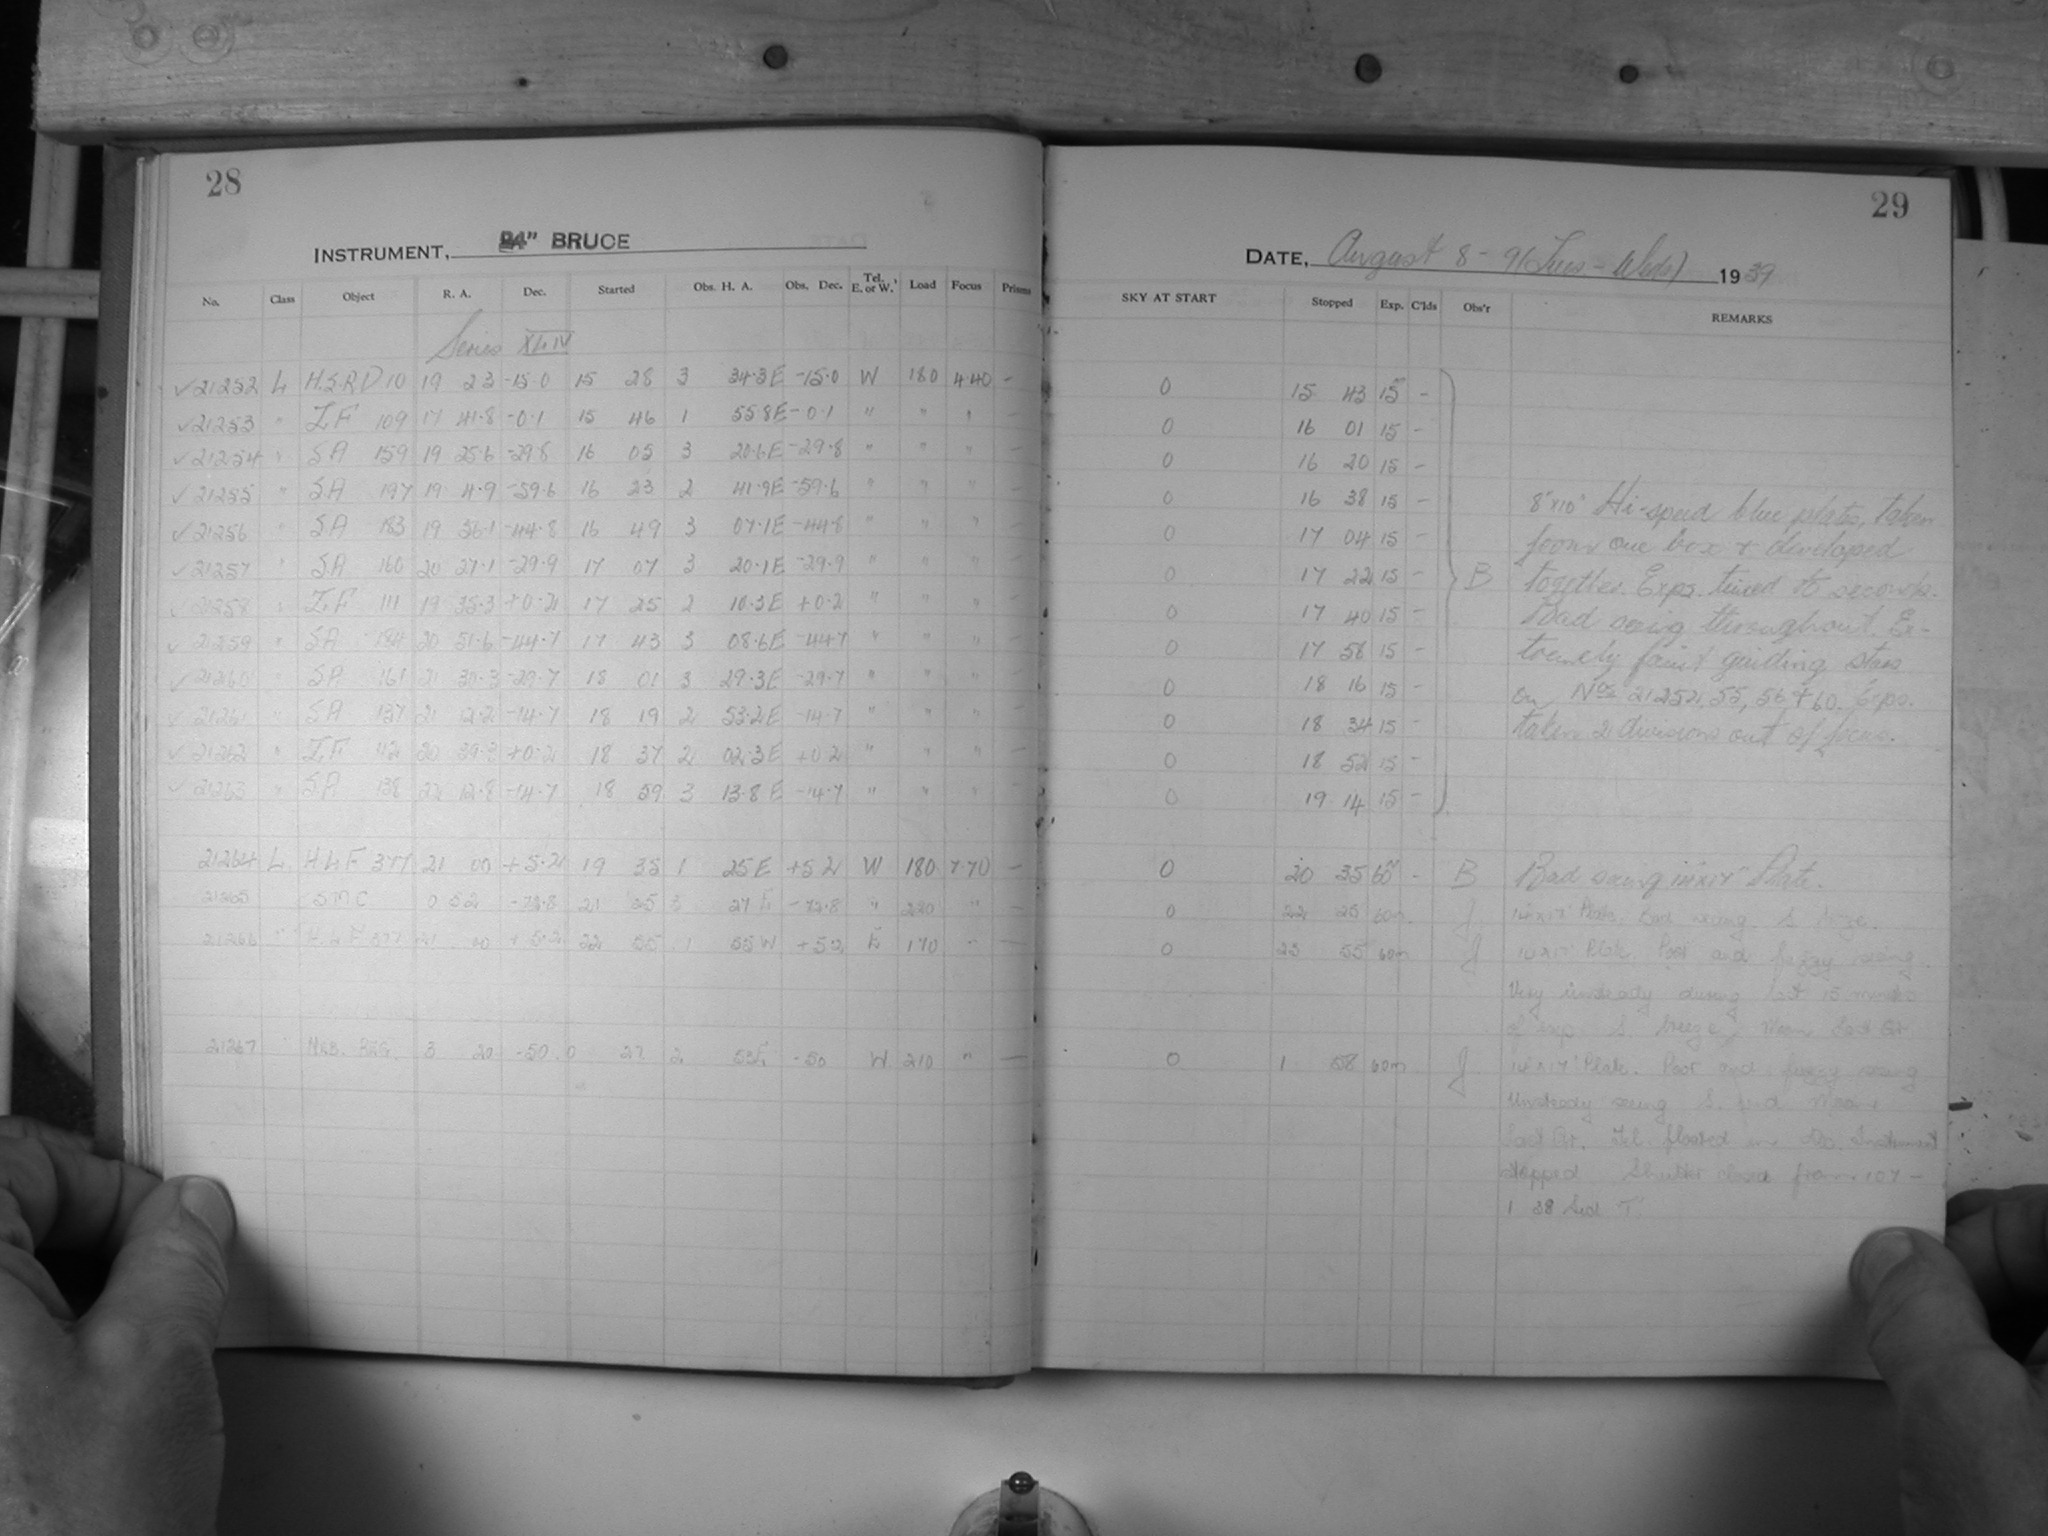 28
INSTRUMENT, 24" BRUCE
No. Class Object R. A. Dec. Started Obs. H. A. Obs. Dec. Tel. E. or W. Load Focus Prisms
Series XLIV
✓21252 L H.S.R.D 10 19 23 -15.0 15 28 3 34.3E -15.0 W 180 4.40 -
✓21253 " I F 109 17 41.8 -0.1 15 46 1 55.8E -0.1 " " " -
✓21254 " SA 159 19 25.6 -29.8 16 05 3 20.6E -29.8 " " " -
✓21255 " SA 197 19 4.9 -59.6 16 23 2 41.9E -59.6 " " " -
✓21256 " SA 183 19 36.1 -44.8 16 49 3 07.1E -44.8 " " " -
✓21257 " SA 160 20 27.1 -29.9 17 07 3 20.1E -29.9 " " " -
✓21258 " I F 111 19 35.3 +0.2 17 25 2 10.3E +0.2 " " " -
✓21259 " SA 184 20 51.6 -44.7 17 43 3 08.6E -44.7 " " " -
✓21260 " SA 161 21 30.3 -29.7 18 01 3 29.3E -29.7 " " " -
✓21261 " SA 137 21 12.2 -14.7 18 19 2 53.2E -14.7 " " " -
✓21262 " I F 112 20 39.3 +0.2 18 37 2 02.3E +0.2 " " " -
✓21263 " SA 138 22 12.8 -14.7 18 59 3 13.8E -14.7 " " " -
21264 L H.L.F 377 21 00 +5.2 19 35 1 25E +5.2 W 180 7.70 -
21265 SMC 0 52 -72.8 21 25 3 27E -72.8 " 220 " -
21266 " H.L.F 377 21 00 +5.2 22 55 1 55W +5.2 E 170 - -
21267 " NEB. REG. 3 20 -50.0 0 27 2 53E -50 W 210 " -
29
DATE, August 8 - 9 (Tues - Weds) 1939
SKY AT START Stopped Exp. C'lds Obs'r REMARKS
0 15 43 15m -
0 16 01 15 -
0 16 20 15 -
0 16 38 15 - 8"x10" Hi-speed blue plates, taken
0 17 04 15 - from one box & developed
0 17 22 15 - B together. Exps. timed to seconds.
0 17 40 15 - Bad seeing throughout. Ex-
0 17 58 15 - tremely faint guiding stars
0 18 16 15 - on Nos 21252, 55, 56 & 60. Exps.
0 18 34 15 - taken 2 divisions out of focus.
0 18 52 15 -
0 19 14 15 -
0 20 35 60m - B Bad seeing 14"x17" Plate.
0 22 25 60m J 14"x17" Plate. Bad seeing. S. breeze.
0 23 55 60m J 14"x17" Plate. Poor and fuzzy seeing.
Very unsteady during last 15 minutes
of exp. S. breeze, Moon last Qr.
0 1 58 60m J 14"x17" Plate. Poor and fuzzy seeing
Unsteady seeing S. wind Moon
last Qr. Tel. floated in Instrument
stopped Shutter closed from 1 07 -
1 38 Sid T.